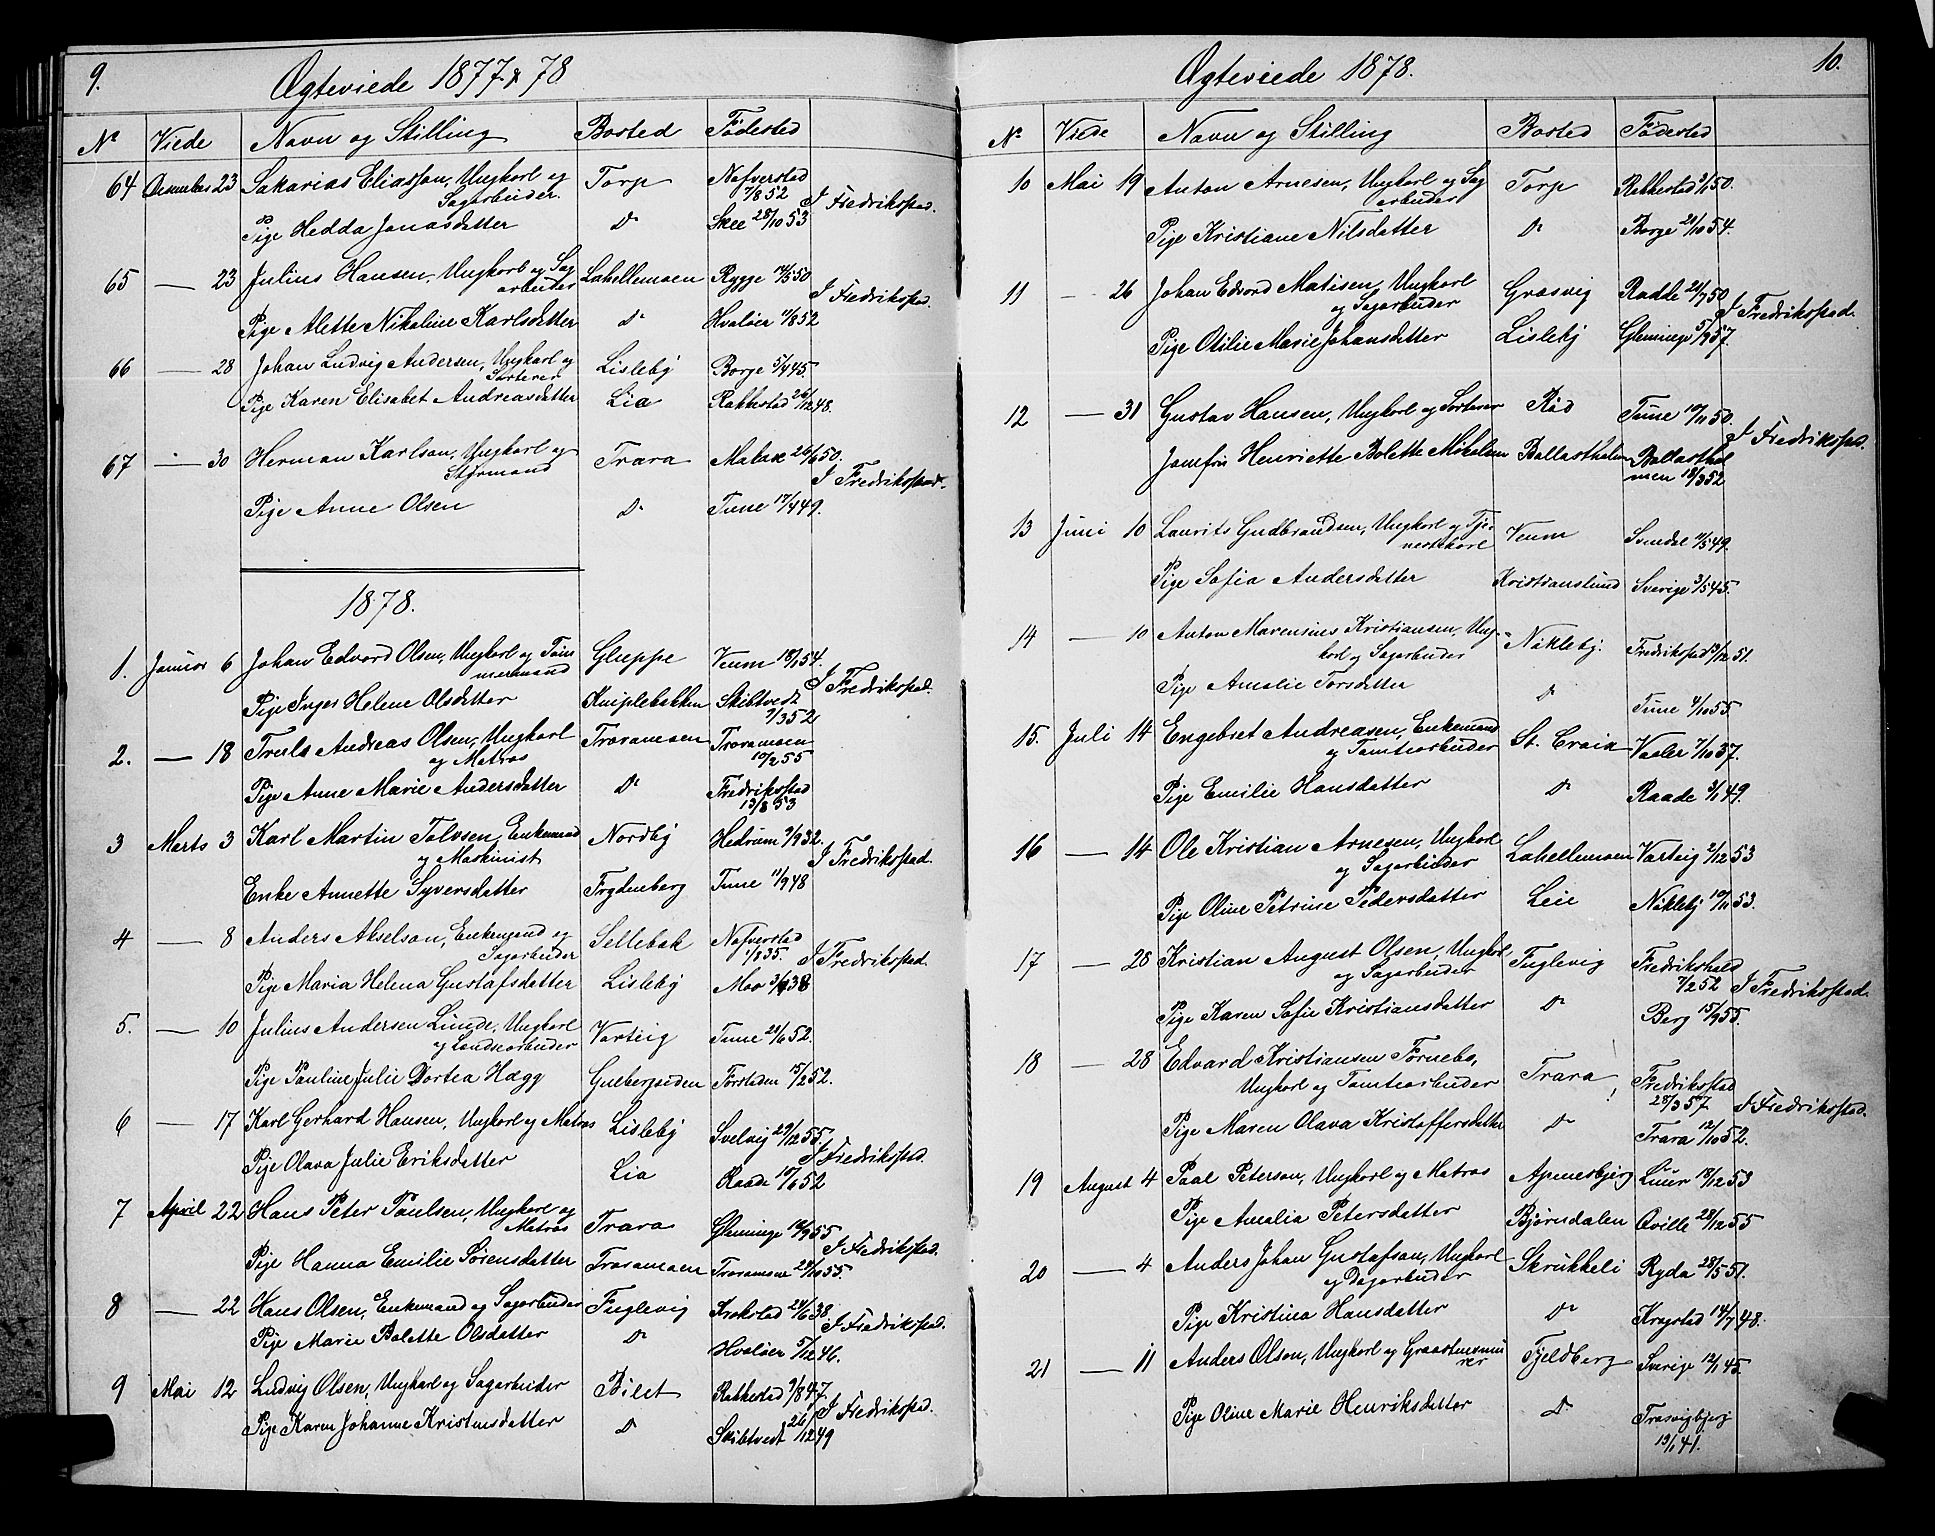 9.
Ægteviede 1877 & 78
No Viede Navn og Stilling Bosted Fødested
64 December 23 Sakarias Eliasson, Ungkarl og Torp Nafverstad
Sagarbeider 7/8 52 I Fredrikstad.
Pige Hedda Jonasdatter Do Skee 28/10 53
65 — 23 Julius Hansen, Ungkarl og Sag Lahellemoen Rygge 14/5 50
arbeider I Fredrikstad.
Pige Alette Nikoline Karlsdatter Do Hvaløer 11/8 52
66 — 28 Johan Ludvig Andersen, Ungkarl og Lisleby Borge 5/4 45.
Sorterer
Pige Karen Elisabet Andreasdatter Lia Rakkestad 26/12 48.
67 — 30 Herman Karlson, Ungkarl og Trara Mabax 26/6 50.
Styrmand I Fredrikstad.
Pige Anne Olsen Do Tune 17/4 49.
1878.
1. Januar 6 Johan Edvard Olsen, Ungkarl og Tøm Gluppe Veum 18/1 54.
mermand I Fredrikstad.
Pige Inger Helene Olsdatter Kniplebakken Skibtvedt
9/3 52
2. — 18 Truls Andreas Olsen, Ungkarl Traramoen Traramoen
og Matros 19/2 55
Pige Anne Marie Andersdatter Do Fredrikstad
13/8 53
3 Marts 3 Karl Martin Tolvsen, Enkemand Nordby Hedrum 9/9 32.
og Maskinist I Fredrikstad.
Enke Annette Syversdatter Frydenberg Tune 11/9 48
4 — 8 Anders Akselson, Enkemand og Sellebak Nafverstad
Sagarbeider 1/8 35. I Fredrikstad.
Pige Maria Helena Gustafsdatter Lisleby Moo 3/9 38
5. — 10 Julius Andersen Lunde, Ungkarl Varteig Tune 21/6 52.
og Landsarbeider
Pige Pauline Julie Dortea Hægg Gulbergsiden Forstaden 15/2 52.
6 — 17 Karl Gerhard Hansen, Ungkarl og Matros Lisleby Svelvig 29/12 55.
I Fredrikstad.
Pige Olava Julie Eriksdatter Lia Raade 10/6 52
7 April 22 Hans Peter Paulsen, Ungkarl og
Matros Trara Glemminge 12/9 55
I Fredrikstad.
Pige Hanna Emilie Sørensdatter Traramoen Traramoen 29/10 55.
8 — 22 Hans Olsen, Enkemand og Sagarbeider Fuglevig Krokstad 24/6 38.
I Fredrikstad.
Pige Marie Bolette Olsdatter Do Hvaløer 5/12 46.
9 Mai 12 Ludvig Olsen, Ungkarl og Sagarbeider Bilet Rakkestad 9/8 47
I Fredrikstad.
Pige Karen Johanne Kristensdatter Do Skibtvedt 26/12 49
10.
Ægteviede 1878.
No Viede Navn og Stilling Bosted Fødested
10 Mai 19 Anton Arnesen, Ungkarl og Sag Torp Rakkestad 3/1 50.
arbeider
Pige Kristiane Nilsdatter Do Borge 21/10 54.
11 — 26 Johan Edvard Matisen, Ungkarl Græsvig Raade 21/7 50
og Sagarbeider I Fredrikstad.
Pige Otilie Marie Johansdatter Lisleby Glemminge 5/9 57.
12 — 31 Gustav Hansen, Ungkarl og Sorterer Rød Tune 10/11 50.
I Fredrikstad.
Jomfru Henriette Bolette Mikelsen Ballastholmen Ballasthol
men 18/3 52
13 Juni 10 Laurits Gudbrandsen, Ungkarl og Tje- Veum Svindal 11/5 49.
nestekarl
Pige Sofia Andersdatter Kristianslund Sverige 3/5 45.
14 — 10 Anton Marensius Kristiansen, Ung- Nikleby. Fredrikstad 13/12 51.
karl og Sagarbeider
Pige Amalie Torsdatter Do
Tune 4/10 55.
15. Juli 14 Engebret Andreasen, Enkemand St. Croix Vaaler 7/10 37.
og Tomtearbeider
Pige Emilie Hansdatter Do Raade 2/1 49.
16 — 14 Ole Kristian Arnesen, Ungkarl Lahellemoen Varteig 2/12 53
og Sagarbeider
Pige Oline Petrine Pedersdatter Leie Nikleby 10/11 53.
17 — 28 Kristian August Olsen, Ungkarl Fuglevig Fredrikshald
og Sagarbeider 7/2 52 I Fredrikstad.
Pige Karen Sofie Kristiansdatter Do Berg 15/9 55.
18 — 28 Edvard Kristiansen Tornebo,
Ungkarl og Tomtearbeider Trara Fredrikstad
28/3 57 I Fredrikstad.
Pige Maren Olava Kristoffersdatter Do Trara 12/10 52.
19 August 4 Paal Peterson, Ungkarl og Matros Apenesbjerg Luur 18/12 53
Pige Amalia Petersdatter Bjørndalen Qville 28/12 55
20 — 4 Anders Johan Gustafson, Ungkarl Skrukkeli Ryda 28/5 51.
og Dagarbeider
Pige Kristina Hansdatter Do Krogstad 14/7 48.
21 — 11 Anders Olson, Ungkarl og Graastensmu Fjeldberg Sverige 12/1 45.
rer
Pige Oline Marie Henriksdatter Do Trosvigbjerg
19/1 41.